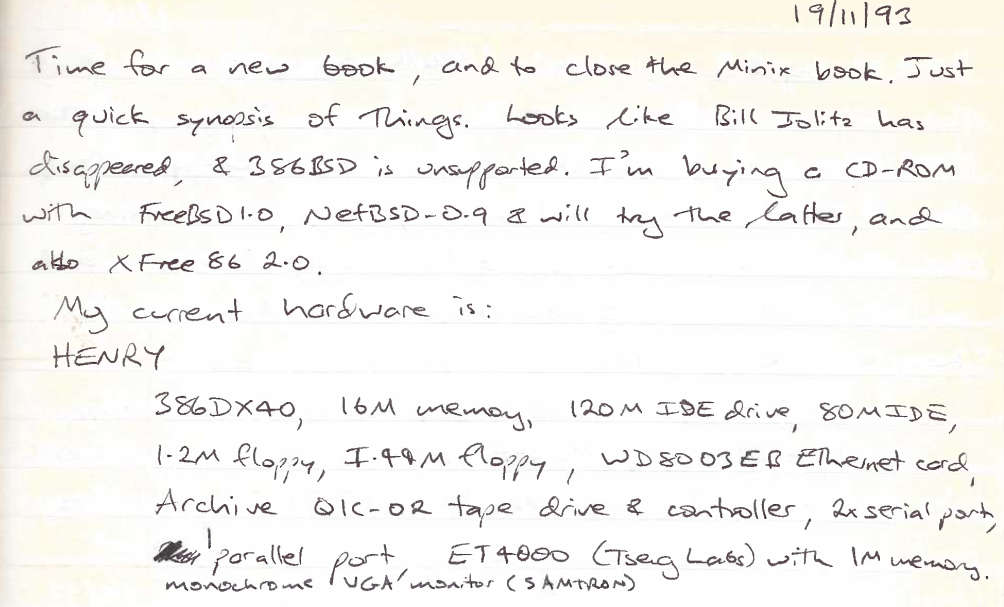 19/11/93
Time for a new book, and to close the Minix book. Just
a quick synopsis of Things. Looks like Bill Jolitz has
disappeared, & 386BSD is unsupported. I'm buying a CD-ROM
with FreeBSD1.0, NetBSD-0.9 & will try the latter, and
also XFree86 2.0.
My current hardware is:
HENRY
386DX40, 16M memory, 120M IDE drive, 80M IDE,
1.2M floppy, 1.44M floppy, WD8003EB Ethernet card,
Archive QIC-02 tape drive & controller, 2x serial port,
1 parallel port, ET4000 (Tseng Labs) with 1M memory.
monochrome VGA monitor (SAMTRON)